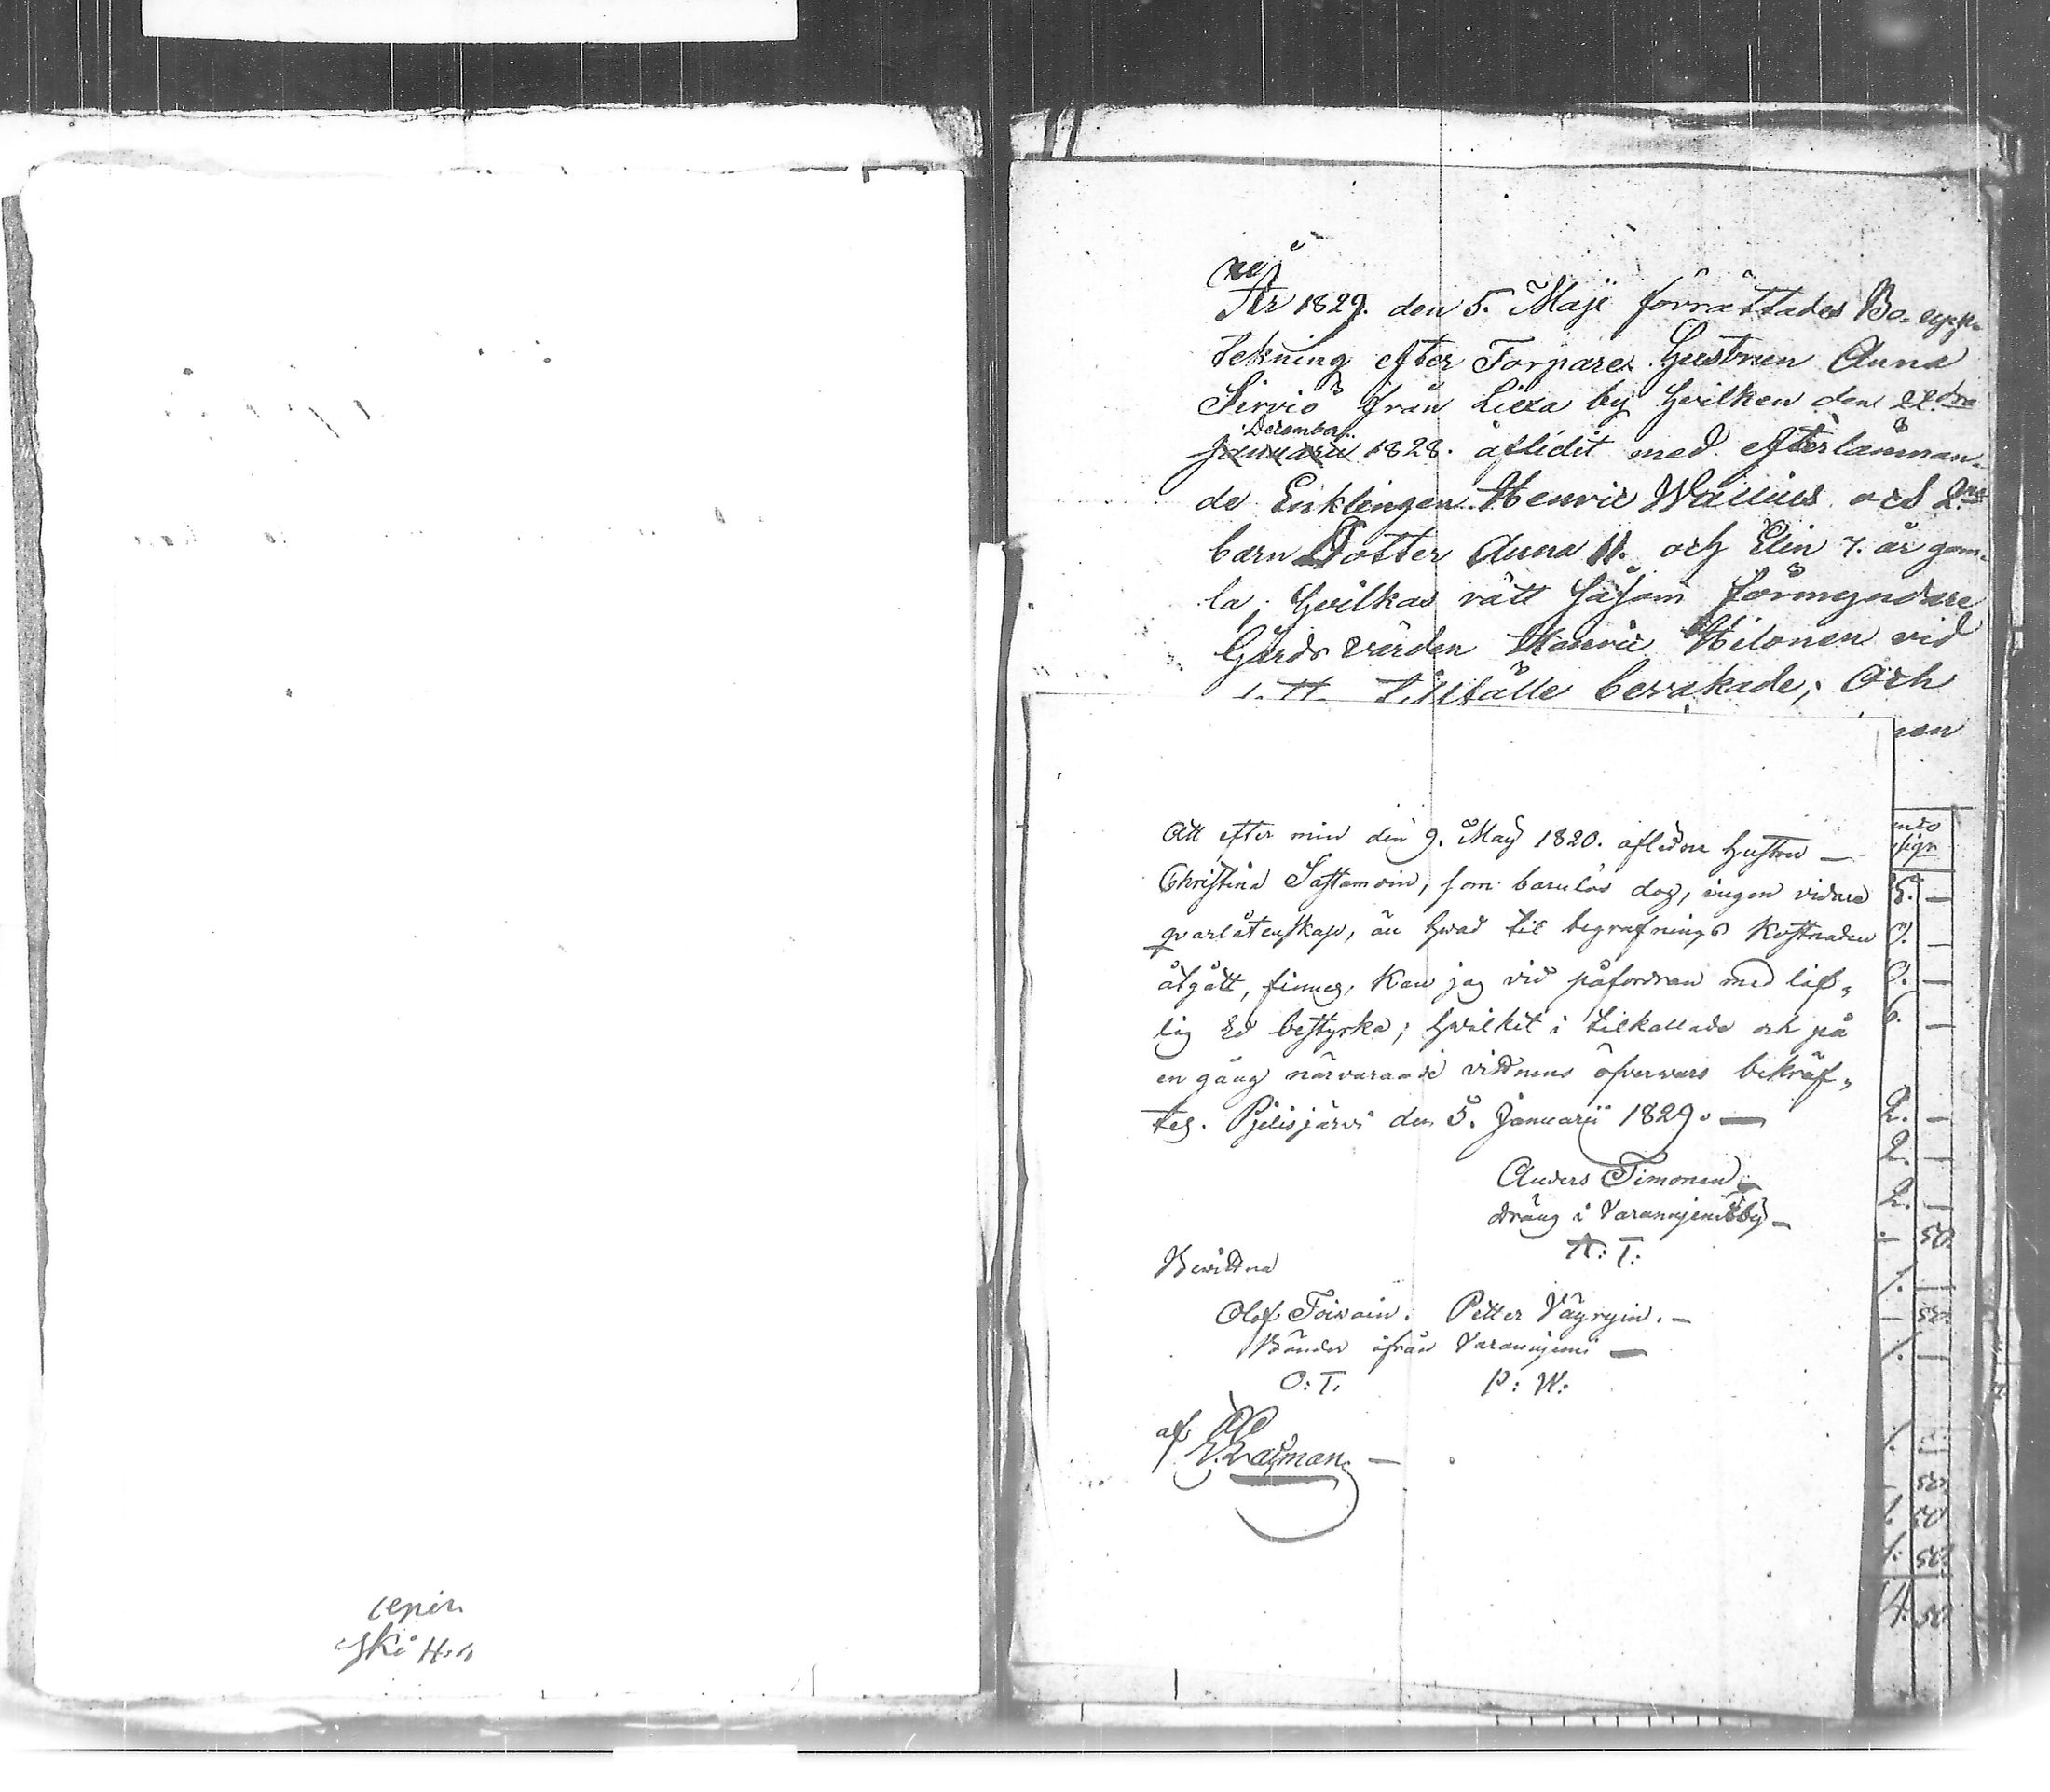 År 1829. den 5. Maji förrättades Bo-upp-
tekning efter Torpare Hustrun Anna
Sirviö ifrån Liexa by hvilken den 22dra
Decembr. 
Januarii 1828. aflidit med efterlämnan-
de Enklingen Henric Wallius och 2ne
barn Dotter Anna 11. och Elin 7. år gam-
la; hvilkas rätt såsom förmyndare
Gårds värden Henric Hilonen vid
tillfälle bevakade; Och
nen
Att efter min den 9. Maij 1820. aflidne hustru —
Christina Sastamoin, som barnlös dog, ingen vidare
qvarlåtenskap, än hvad til begrafnings kostnaden
åtgått, finnes, kan jag vid påfordran med lif-
lig Ed bestyrka; hvilket i tilkallade och på
en gång närvarande vittnens öfvervaro bekräf-
tes. Pielisjärvi den 5. Januarii 1829. —
Anders Timonen
dräng i Varamjemi by —
A: T:
Bevittna
Olof Toivain. Petter Väyryin. —
Bönder ifrån Varamjemi —
O: T. P: W:
af
E. Eagman. —
5. —
2. —
2. —
2. —
— 50.
1. —
— 50.
1. —
50.
1. 50
1. 50.
4. 50